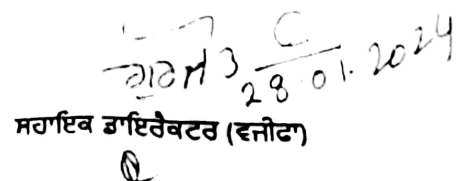 28.01.2024
ਸਹਾਇਕ ਡਾਇਰੈਕਟਰ (ਵਜੀਫਾ)